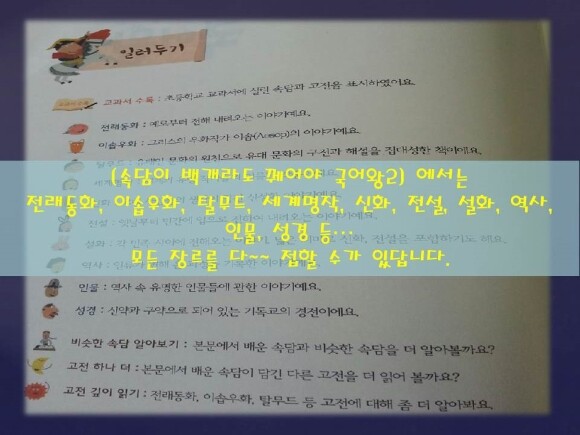 일러두기
교과서 수록 : 초등학교 교과서에 실린 속담과 고전을 표시하였어요.
전래동화 : 예로부터 전해 내려오는 이야기예요.
이솝우화 : 그리스의 우화작가 이솝(Aesop)의 이야기예요.
유대 문화의 구전과 해설을 집대성한 책이에요.
(속담이 백개라도 꿰어야 국어왕2) 에서는
전래동화, 이솝우화, 탈무드, 세계명작, 신화, 전설, 설화, 역사,
인물, 성경 등...
모든 장르를 다~~ 접할 수가 있답니다.
인물 : 역사 속 유명한 인물들에 관한 이야기예요.
성경 : 신약과 구약으로 되어 있는 기독교의 경전이에요.
비슷한 속담 알아보기 : 본문에서 배운 속담과 비슷한 속담을 더 알아볼까요?
고전 하나 더 : 본문에서 배운 속담이 담긴 다른 고전을 더 읽어 볼까요?
고전 깊이 읽기 : 전래동화, 이솝우화, 탈무드 등 고전에 대해 좀 더 알아봐요.